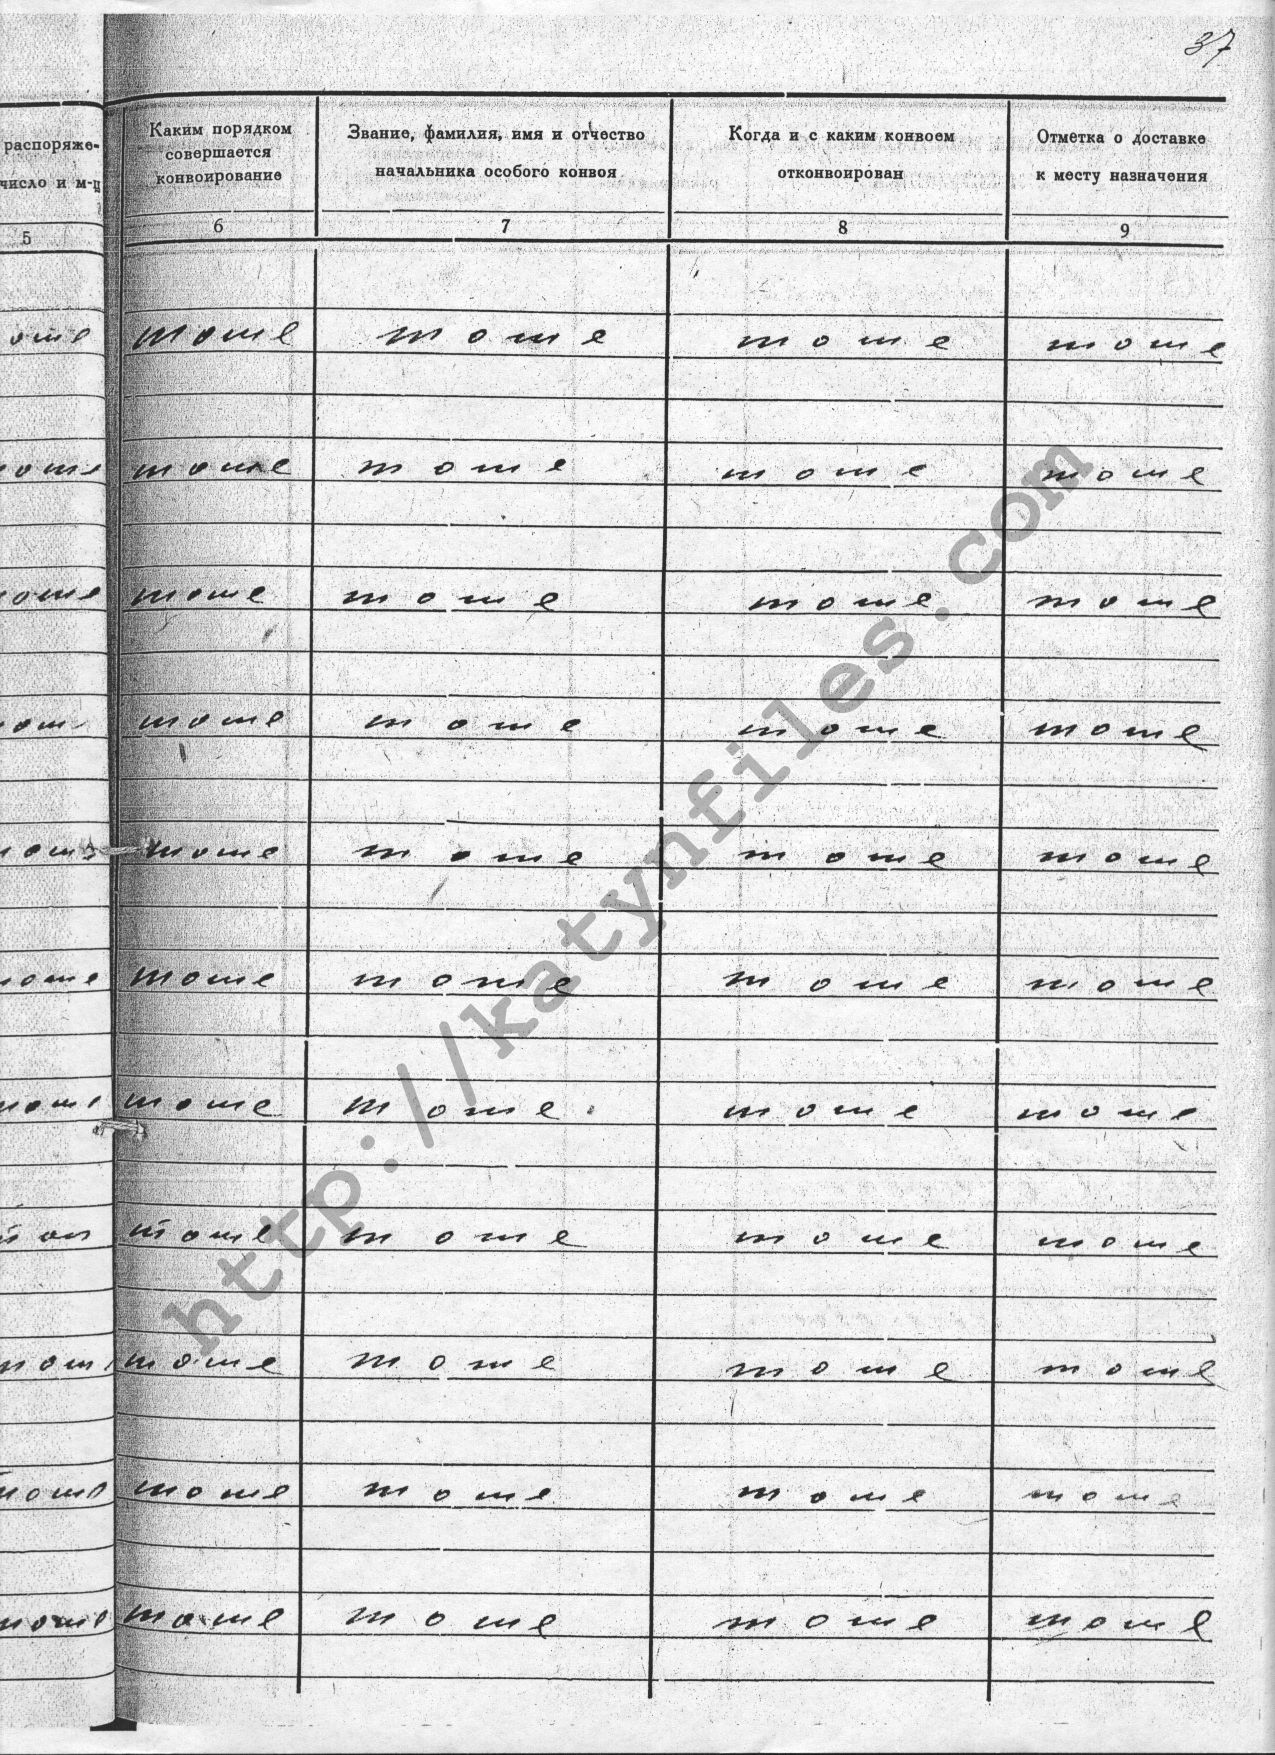 37
распоряже-
число и м-ц
Каким порядком
совершается
конвоирование
Звание, фамилия, имя и отчество
начальника особого конвоя
Когда и с каким конвоем
отконвоирован
Отметка о доставке
к месту назначения
5 6 7 8 9
оше тоше тоше тоше тоше
тоше тоше тоше тоше тоше
тоше тоше тоше тоше тоше
тош тоше тоше тоше тоше
тоше тоше тоше тоше тоше
тоше тоше тоше тоше тоше
тоше тоше тоше тоше тоше
тоше тоше тоше тоше
тош тоше тоше тоше тоше
тоше тоше тоше тоше тоше
тоше тоше тоше тоше тоше
http://katynfiles.com